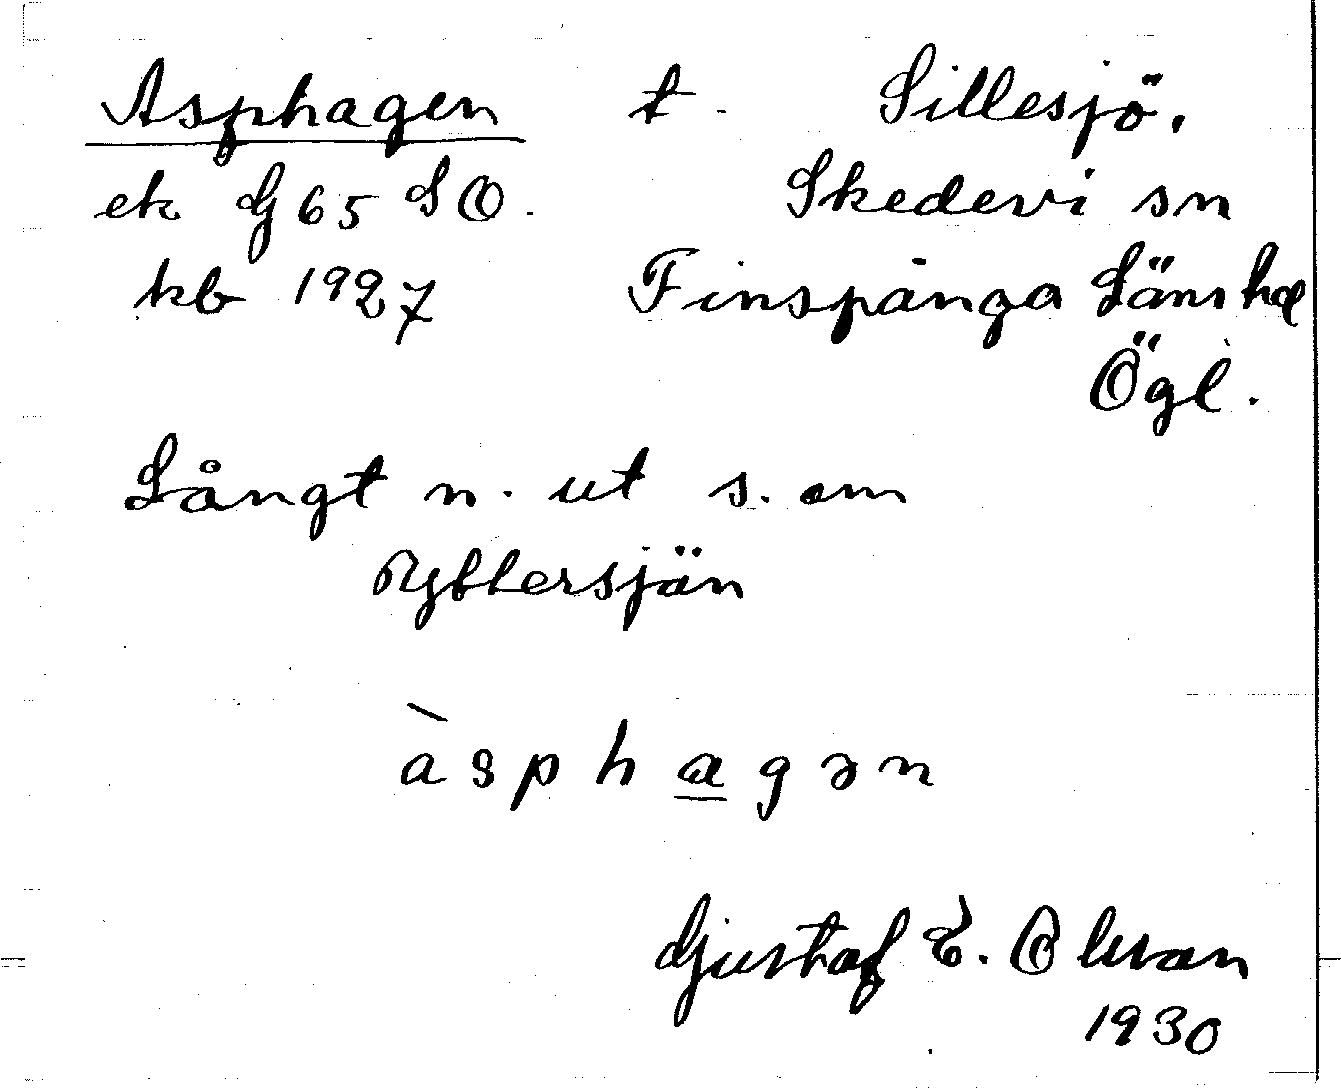 Asphagen t. Sillesjö,
ek G 65 SO. Skedevi sn
kb 1927 Finspånga Läns hd
Ögl.
Långt n. ut s. om
Ryttersjön
àsphagən
Gustaf E. Olsson
1930